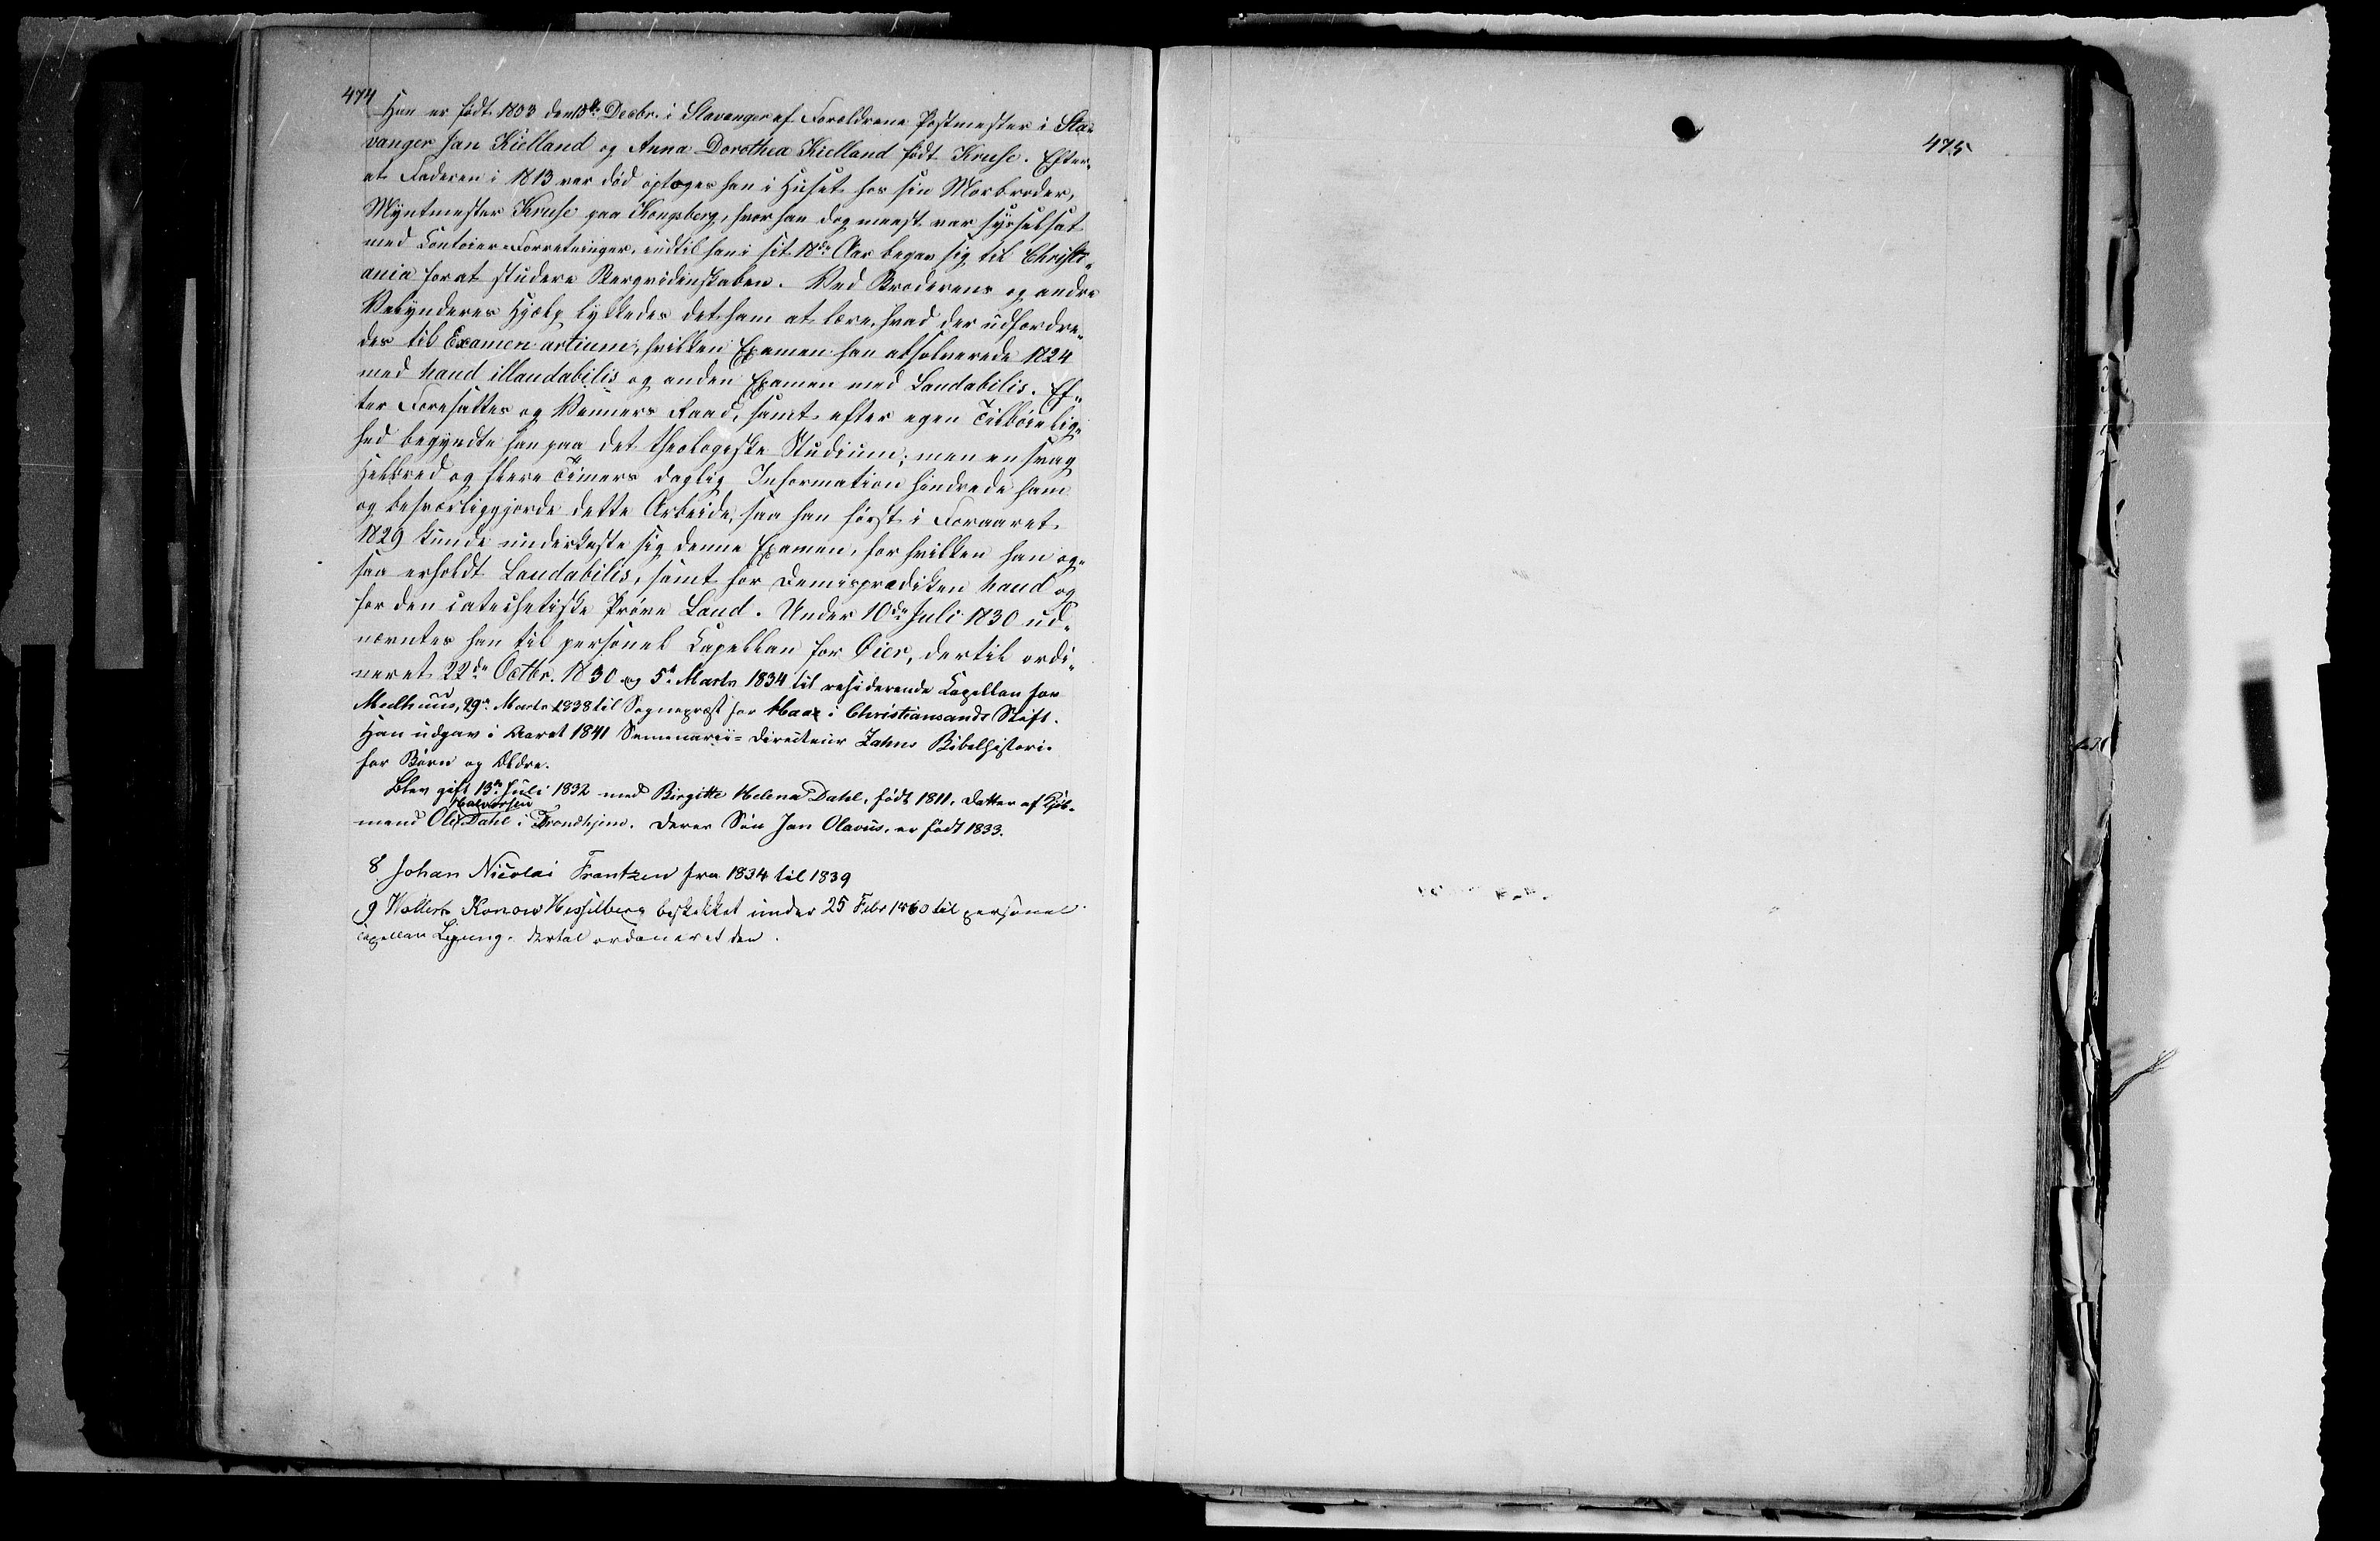 474
Han er født 1803 den 13de Decbr. i Stavanger af Forældrene Postmester i Sta-
vanger Jan Kielland og Anna Dorothea Kielland født Kruse. Efter-
at Faderen i 1813 var død optoges han i Huset hos sin Morbroder,
Myntmester Kruse paa Kongsberg, hvor han dog meest var sysselsat
med Contoier-Forretninger, indtil han i sit 18de Aar begav sig til Christi-
ania for at studere Bergvidenskaben. Ved Broderens og andre
Velynderes Hjælp lykkedes det ham at lære, hvad der udfordre-
des til Examen artium, hvilken Examen han absolverede 1824
med haud illaudabilis og anden Examen med Laudabilis. Ef-
ter Foresattes og Venners Raad, samt efter egen Tilbøielig-
hed begyndte han paa det theologiske Studium; men en svag
Helbred og flere Timers daglig Information hindrede ham
og besværliggjorde dette Arbeide, saa han først i Foraaret
1829 kunde underkaste sig denne Examen, for hvilken han og-
saa erholdt Laudabilis, samt for Demisprædiken haud og
for den catechetiske Prøve Laud. Under 10de Juli 1830 ud-
nævntes han til personel Capellan for Øier, dertil ordi-
neret 22de Octbr. 1830 og 5te Marts 1834 til residerende Capellan for
Meelhuus, 29de Marts 1838 til Sognepræst for Haa i Christiansands Stift.
Han udgav i Aaret 1841 Seminarii-Directeur Zahns Bibelhistorie
for Børn og Ældre.
Blev gift 13de Juli 1832 med Birgitte Helena Dahl, født 1811, Datter af Kjøb-
mand Ole Halvorsen Dahl i Trondhjem. Deres Søn Jan Olavus, er født 1833.
8 Johan Nicolai Frantzen fra 1834 til 1839
9 Wollert Konow Hesselberg beskikket under 25 Febr 1860 til personel
Capellan dertil ordineret den .
475